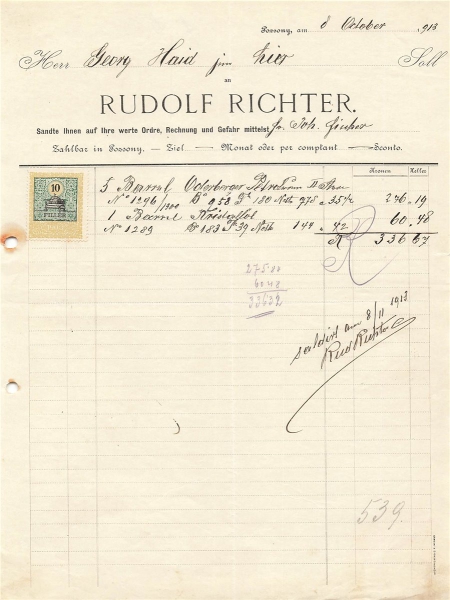 Pozsony, am 8 October 1913
Herr Georg Haid jun hier Soll
an
RUDOLF RICHTER.
Sandte Ihnen auf Ihre werte Ordre, Rechnung und Gefahr mittelst Joh. Fischer
Zahlbar in Pozsony. — Ziel — Monat oder per comptant — Sconto.
Kronen Heller
10
FILLÉR
5 Barrel Oderberger II
No 1296/1300 Bo 958 Ta 180 Netto 778 35½ 276.19
1 Barrel Kristallöl
No 1289 Bo 183 Ta 39 Netto 144 42 60.48
K 336 67
275 84
60 48
336 32
saldirt am 8/11 1913
Rud Richter
539.